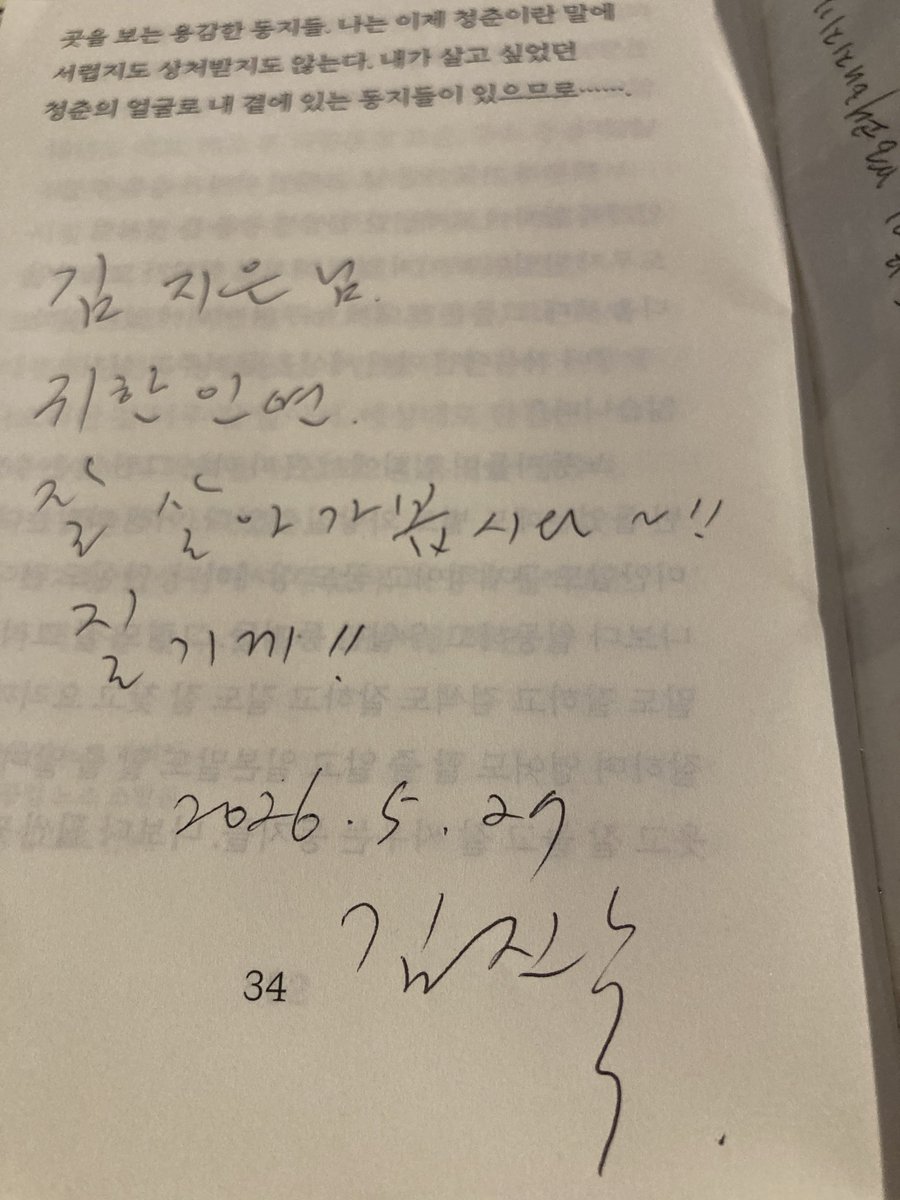 곳을 보는 용감한 동지들. 나는 이제 청춘이란 말에
서럽지도 상처받지도 않는다. 내가 살고 싶었던
청춘의 얼굴로 내 곁에 있는 동지들이 있으므로…….
김 지은 님.
귀한 인연.
잘 살아가봅시다~!!
질기게!!
2026. 5. 27
김진숙
34